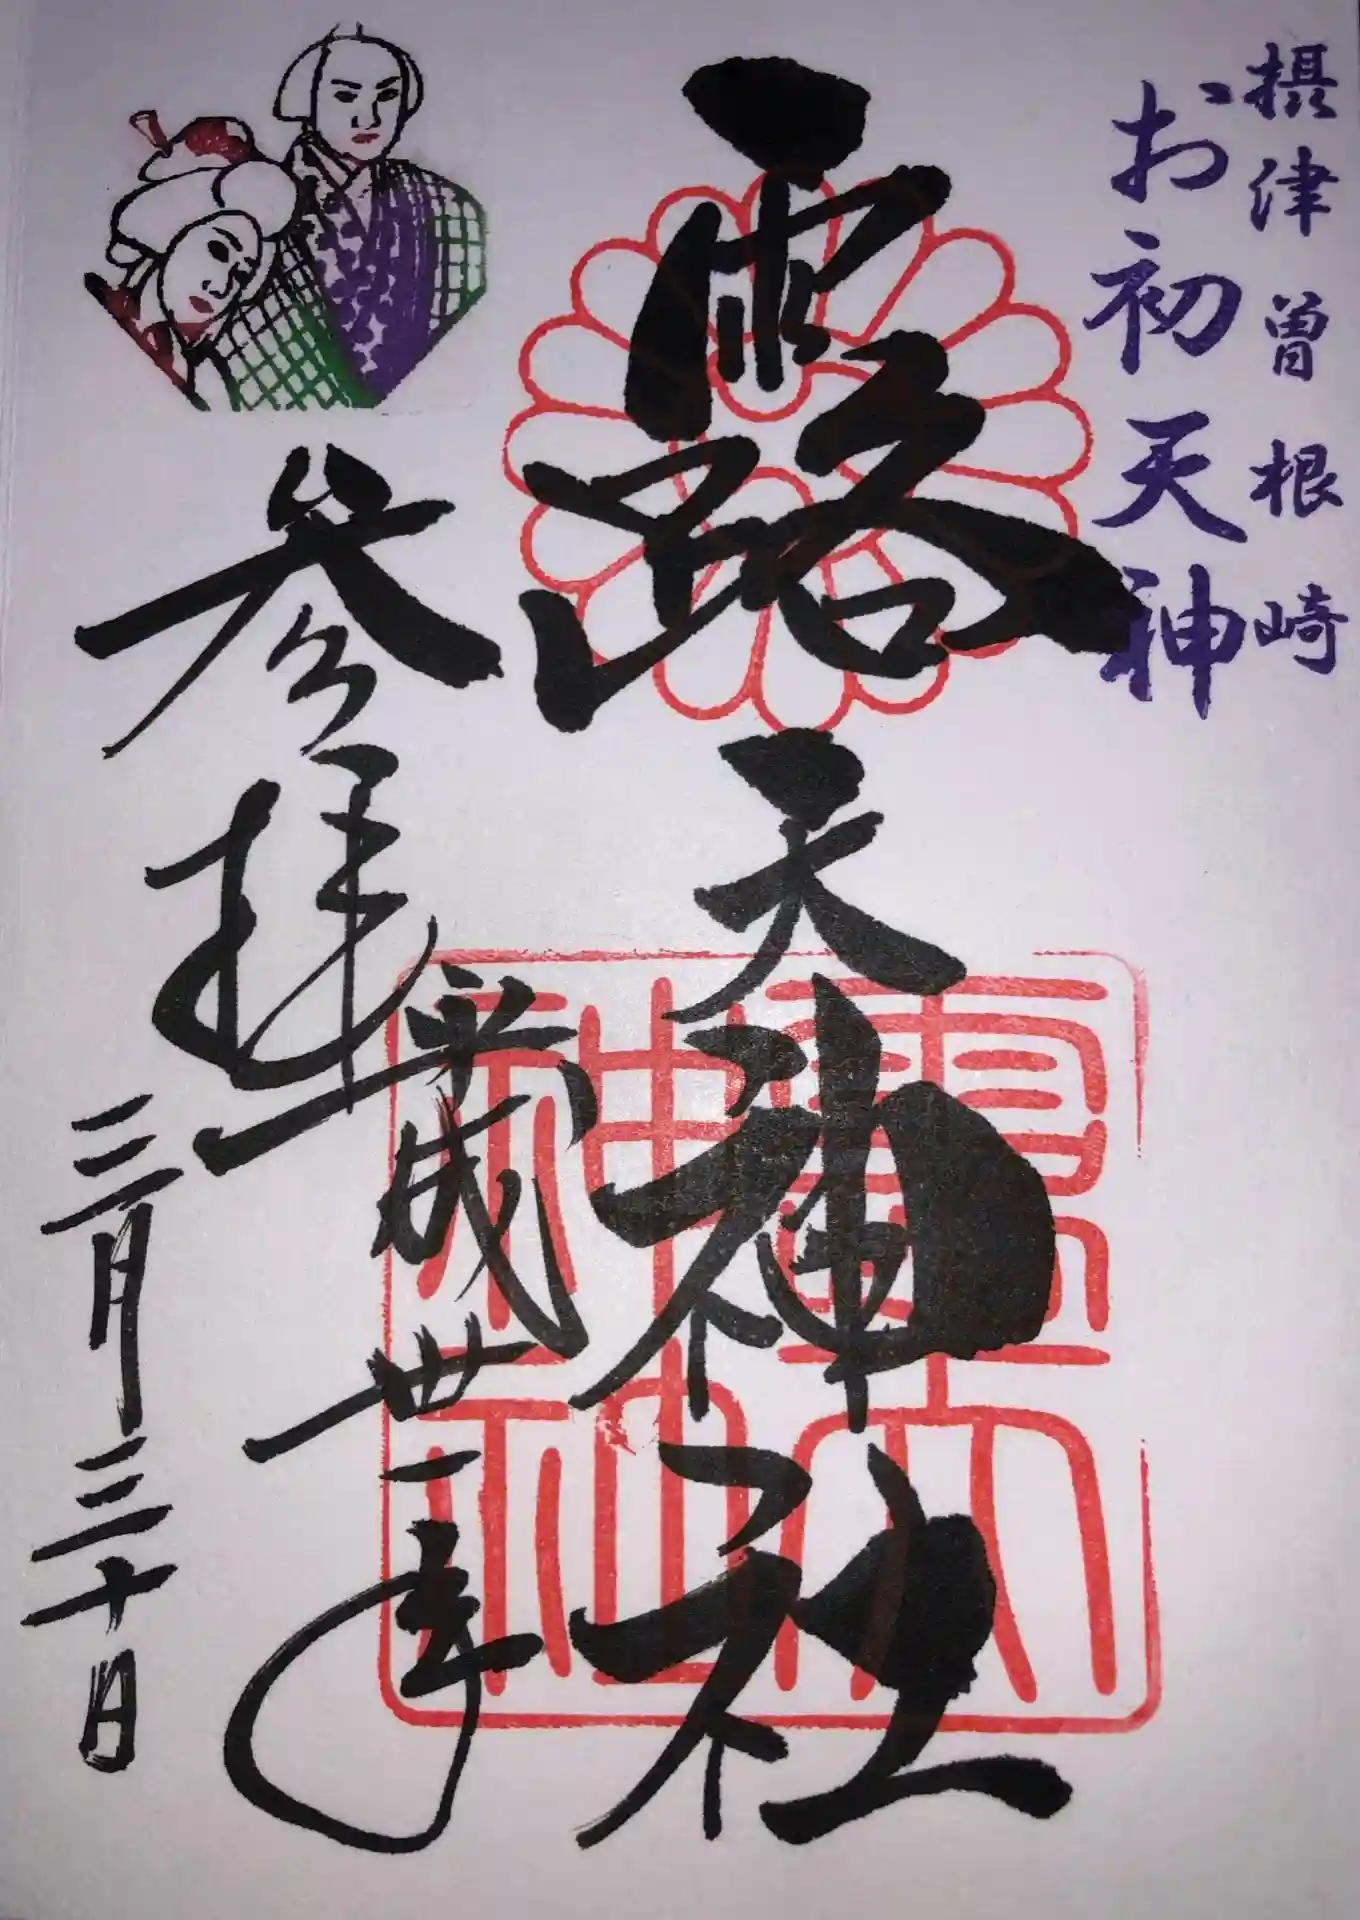 摂津曽根崎
お初天神
露天神社
参拝
平成卅一年
三月三十日